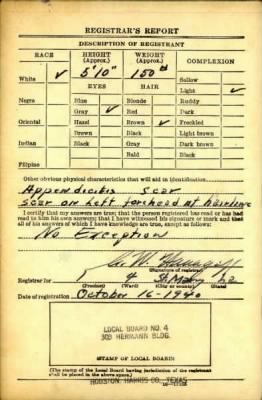 REGISTRAR'S REPORT
DESCRIPTION OF REGISTRANT
RACE HEIGHT (Approx.) WEIGHT (Approx.) COMPLEXION
White ✓ 5'10" 150 Sallow
EYES HAIR Light ✓
Negro Blue Blonde Ruddy
Gray ✓ Red Dark
Oriental Hazel Brown ✓ Freckled
Brown Black Light brown
Indian Black Gray Dark brown
Bald Black
Filipino
Other obvious physical characteristics that will aid in identification
Appendicitis Scar
Scar on Left forehead at hairline
I certify that my answers are true; that the person registered has read or has had
read to him his own answers; that I have witnessed his signature or mark and that
all of his answers of which I have knowledge are true, except as follows:
No Exception
(Signature of registrar)
Registrar for 1 4
(Precinct) (Ward) (City or county) (State)
Date of registration October 16-1940
LOCAL BOARD NO. 4
303 HERMANN BLDG.
(STAMP OF LOCAL BOARD)
(The stamp of the Local Board having jurisdiction of the registrant
shall be placed in the above space.)
HOUSTON, HARRIS CO., TEXAS